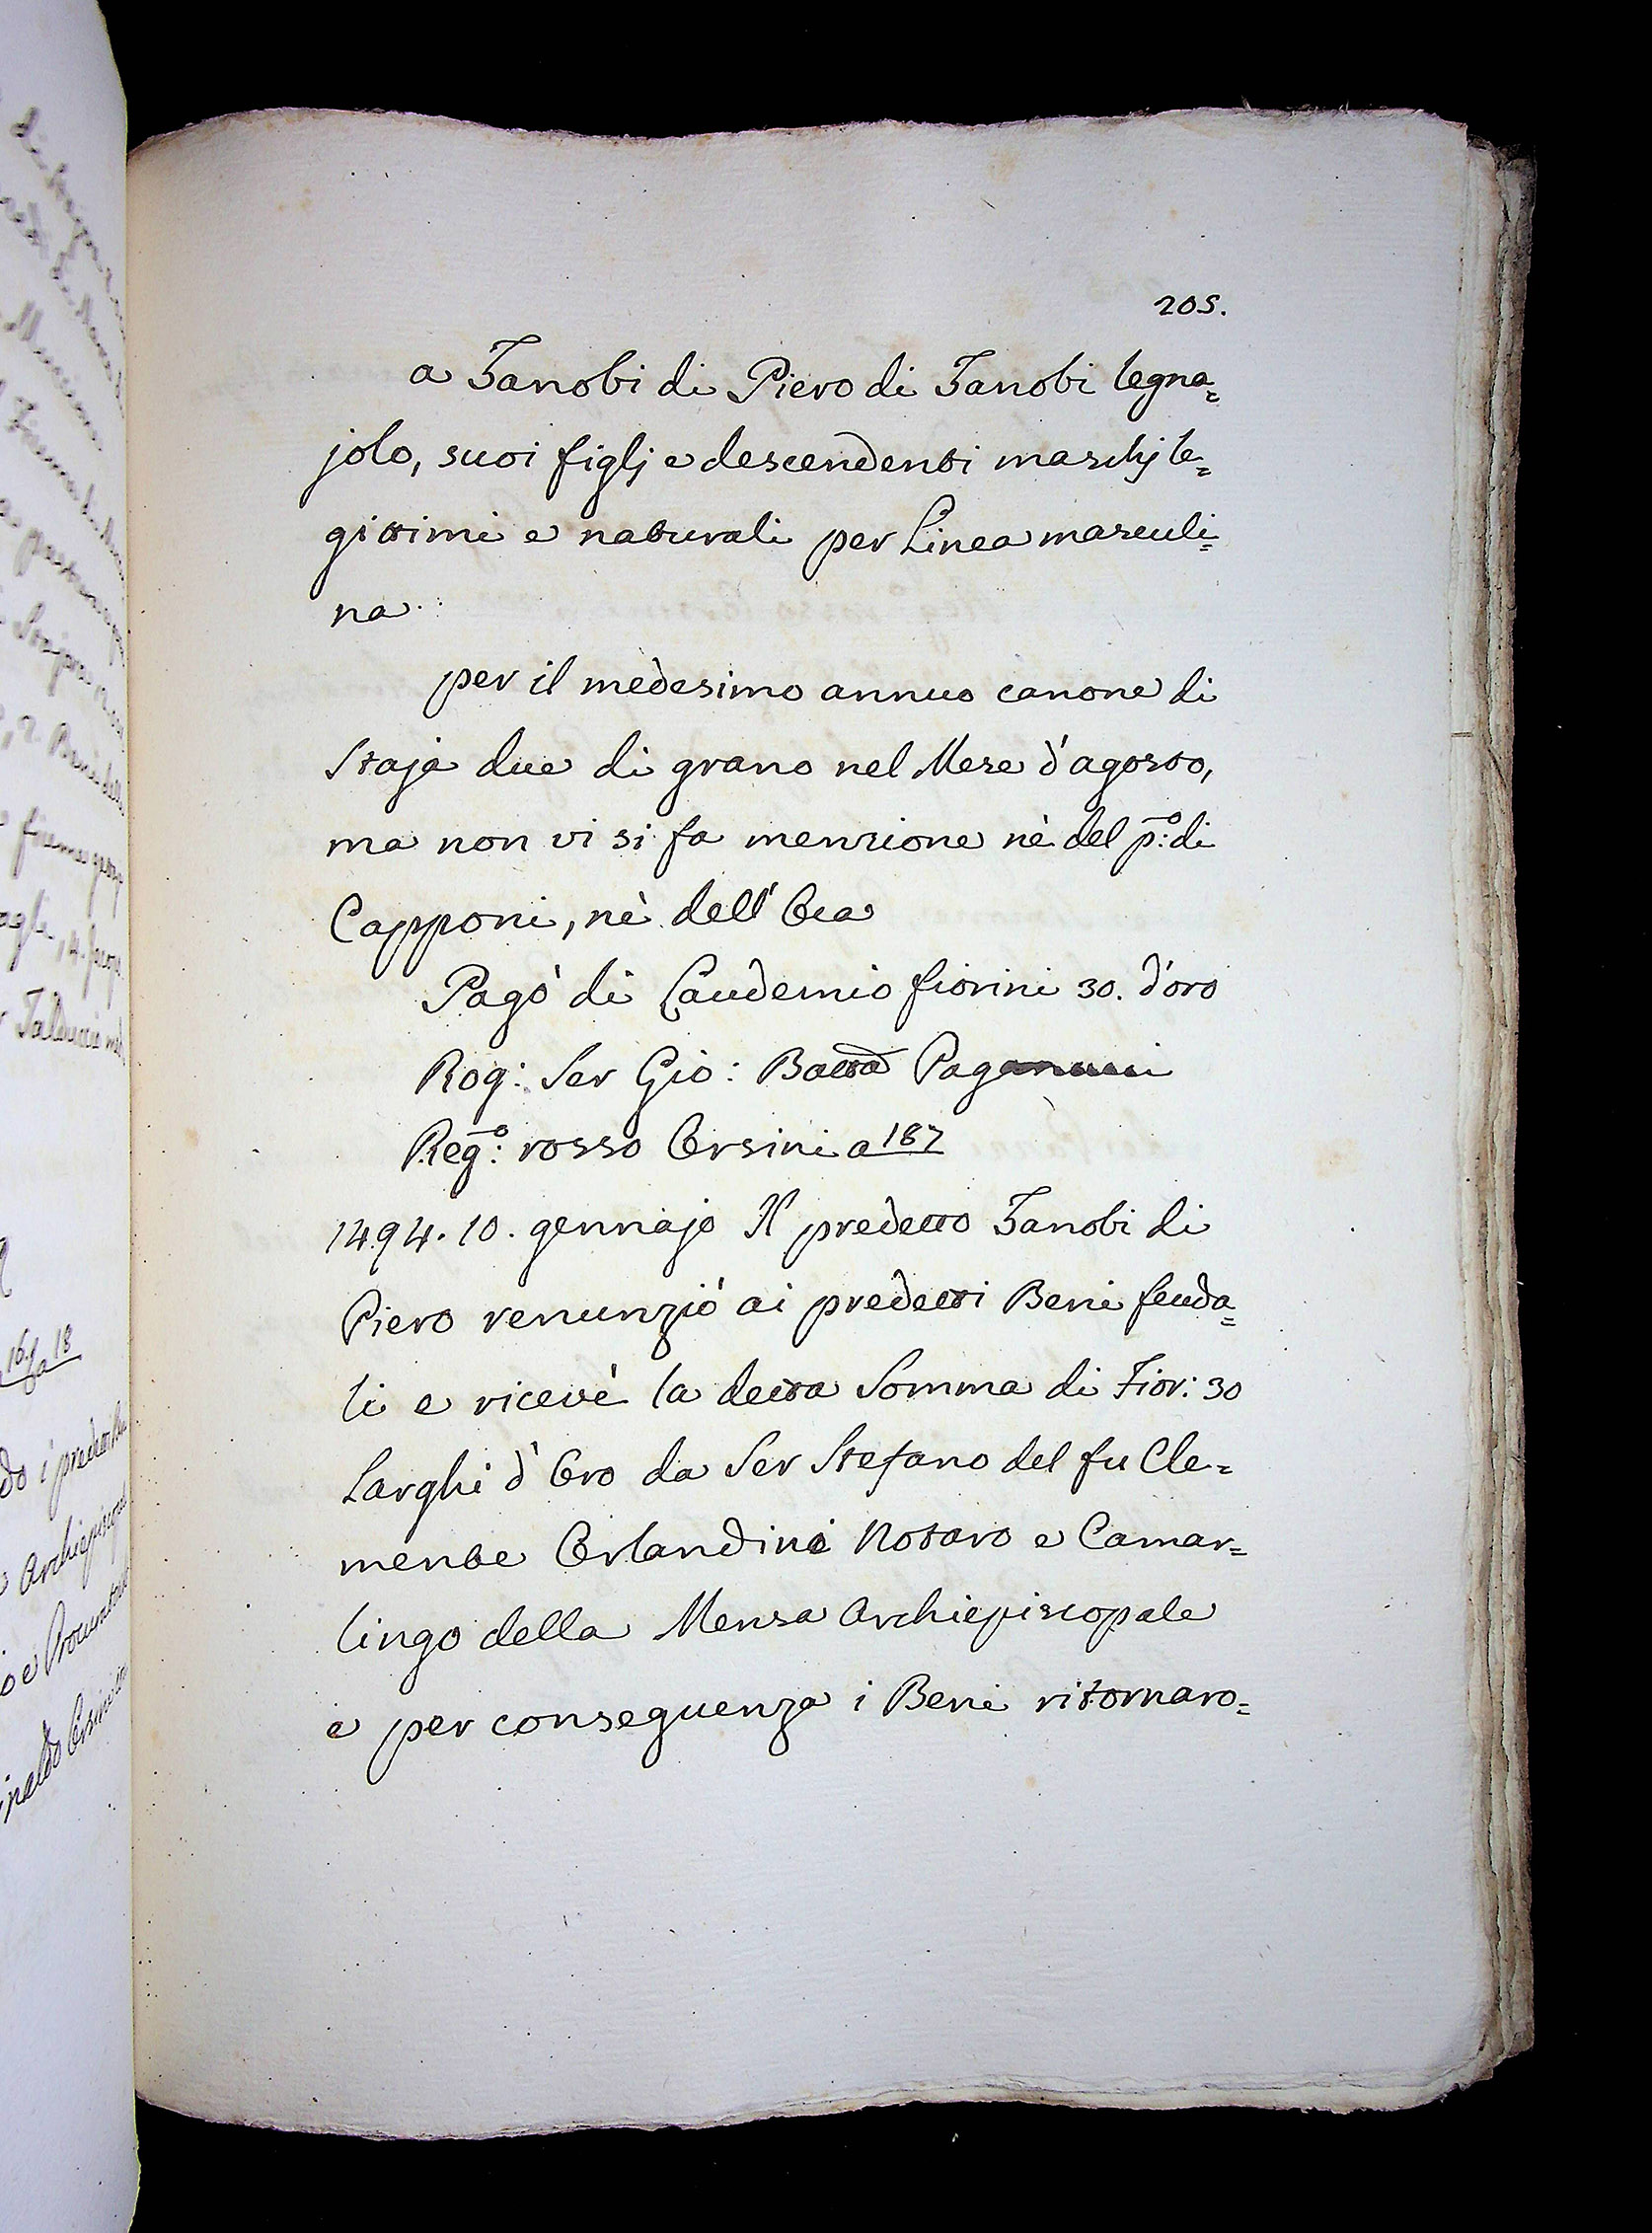 205.
a Zanobi di Piero di Zanobi legna=
jolo, suoi figlj e descendenti maschj le=
gittimi e naturali per Linea masculi=
na
per il medesimo annuo canone di
Staja due di grano nel Mese d'agosto,
ma non vi si fa menzione nè del p:º di
Capponi, nè dell'Oca
Pagò di Laudemio fiorini 30. d'oro
Rog: Ser Gio: Batta
Reg:º rosso Orsini a 187
1494. 10. gennajo Il predetto Zanobi di
Piero renunziò ai predetti Beni feuda=
li e ricevè la detta Somma di Fior: 30
Larghi d'Oro da Ser Stefano del fu Cle=
mente Orlandini Notaro e Camar=
lingo della Mensa Archiepiscopale
e per conseguenza i Beni ritornaro=